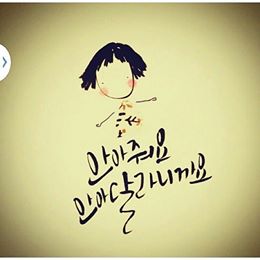 안아줘요
안아달라니까요